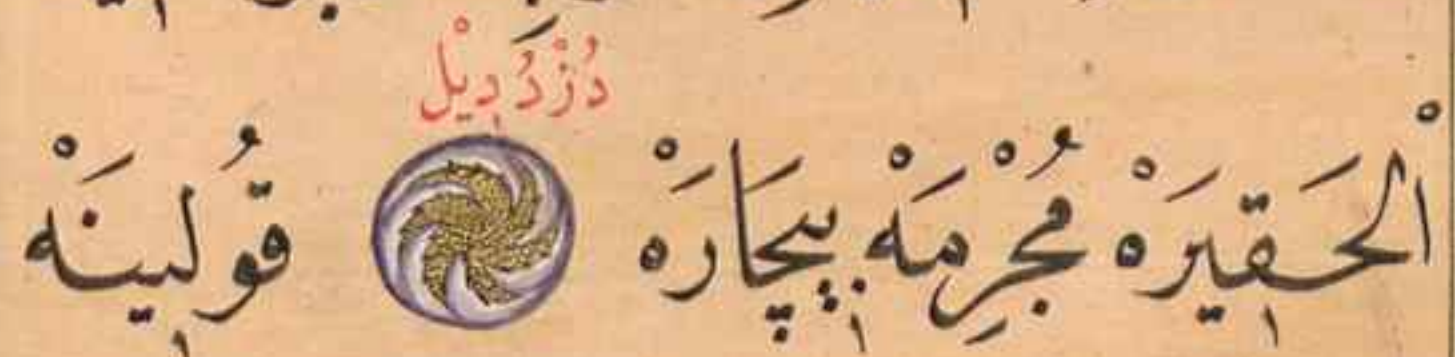 دُزْدُ دِيلْ
اْلحَقِيرَهْ مُجْرِمَهْ بِيچَارَهْ قُولِينَهْ